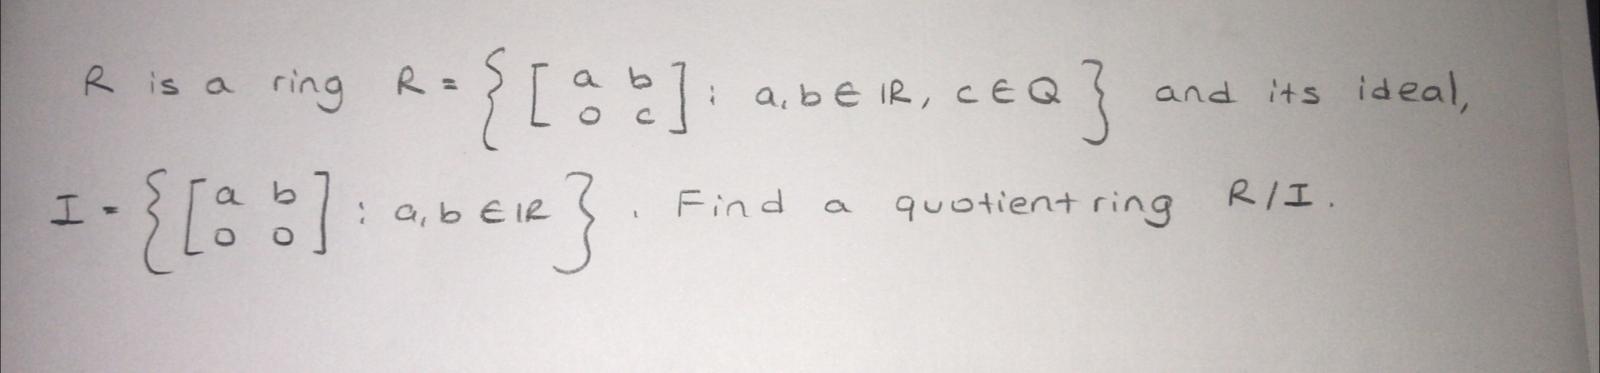 R is a ring R = { [ a b 0 c ] : a, b ∈ ℝ, c ∈ Q } and its ideal,
I = { [ a b 0 0 ] : a, b ∈ ℝ } . Find a quotient ring R/I.